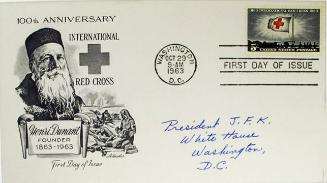 100th ANNIVERSARY
INTERNATIONAL
RED CROSS
Henri Dunant
FOUNDER
1863-1963
First Day of Issue
WASHINGTON
OCT 29
9-AM
1963
D.C.
5¢
UNITED STATES POSTAGE
FIRST DAY OF ISSUE
President J.F.K.
White House
Washington,
D.C.